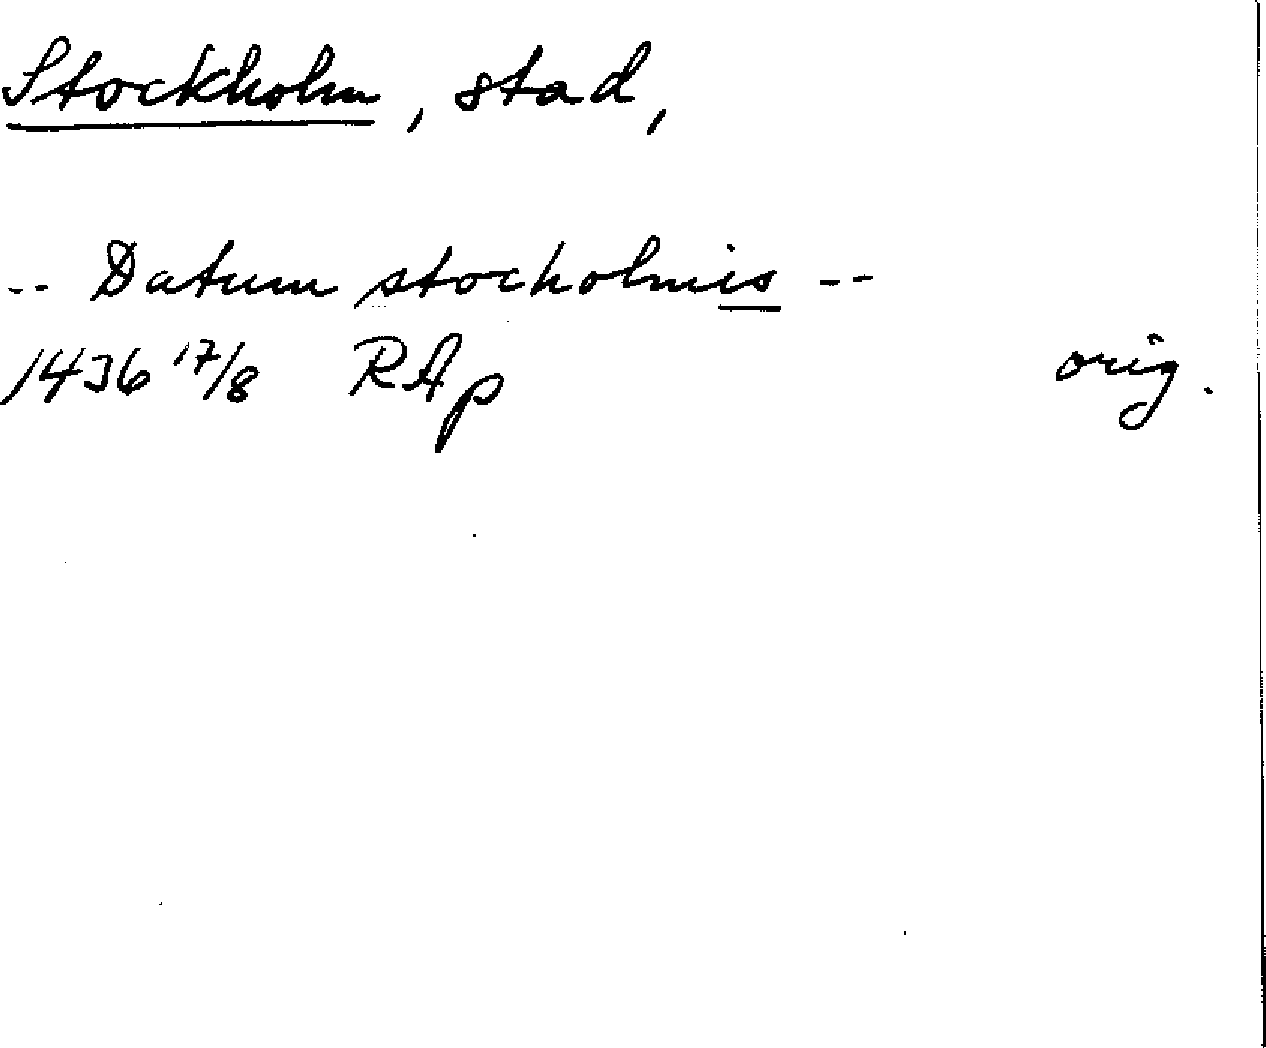 Stockholm, stad,
-- Datum stocholmis --
1436 17/8 RAp orig.